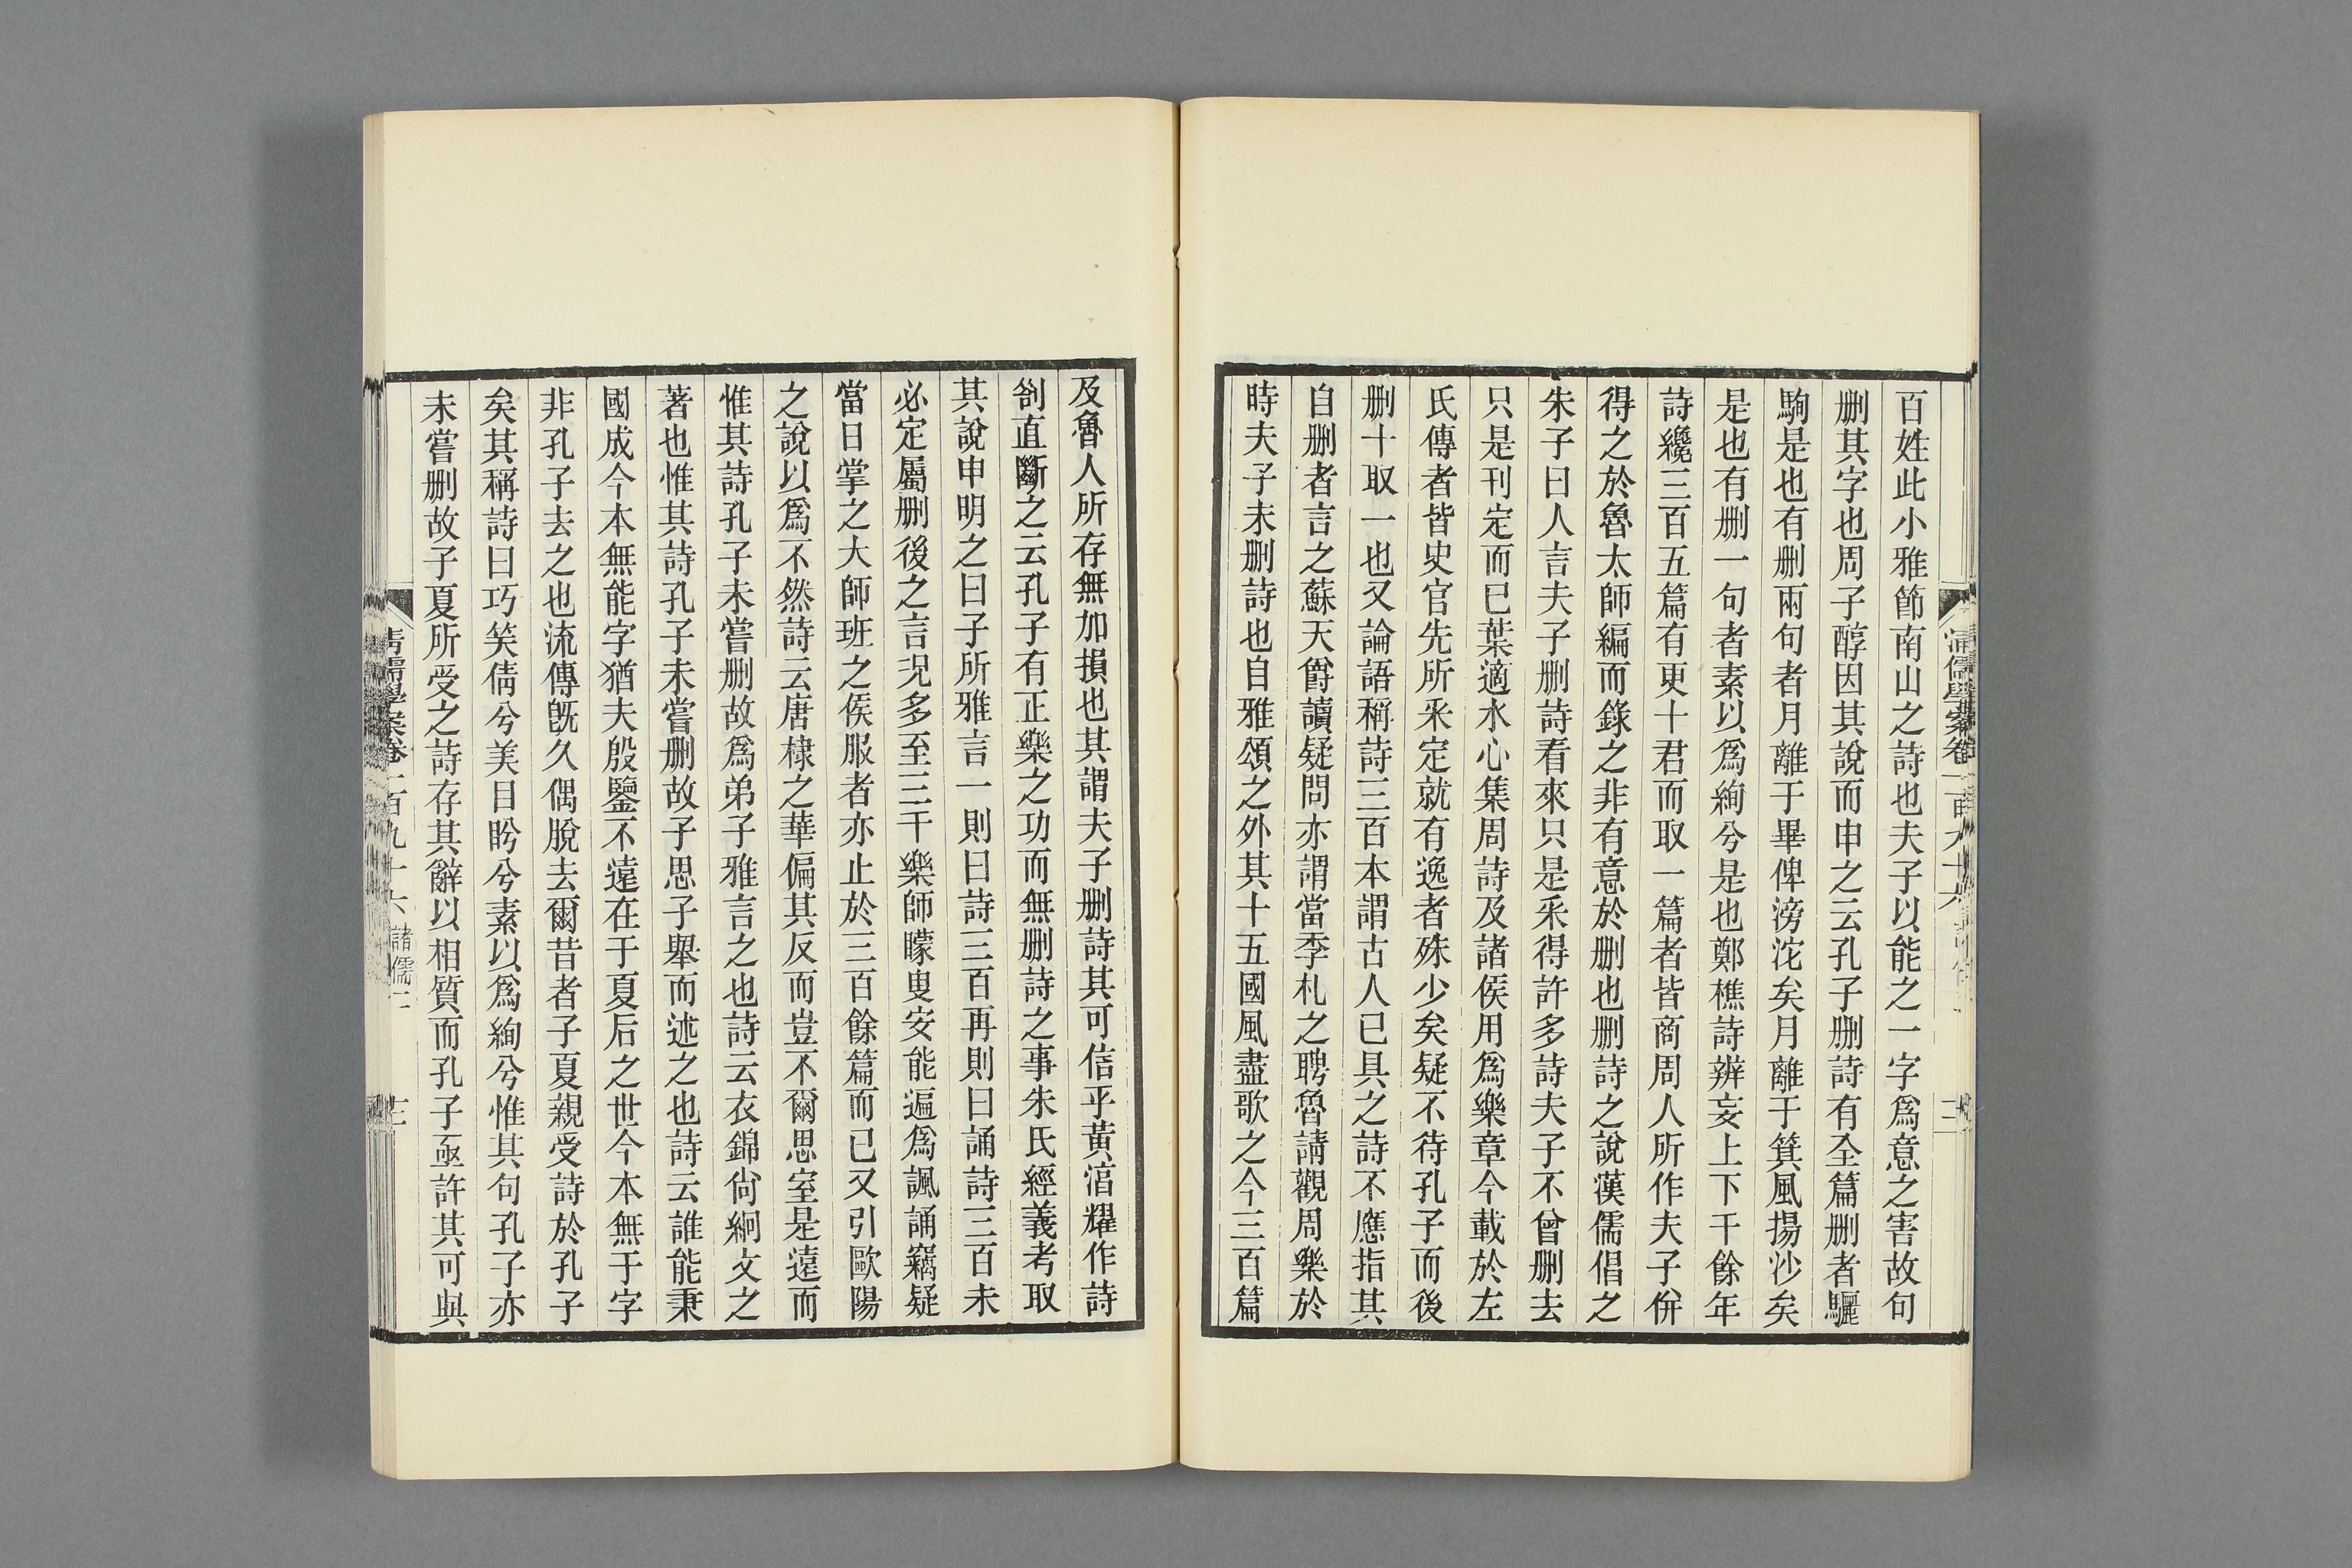 百姓此小雅節南山之詩也夫子以能之一字爲意之害故句
删其字也周子醇因其說而申之云孔子删詩有全篇删者驪
駒是也有删兩句者月離于畢俾滂沱矣月離于箕風揚沙矣
是也有删一句者素以爲絢兮是也鄭樵詩辨妄上下千餘年
詩纔三百五篇有更十君而取一篇者皆商周人所作夫子併
得之於魯太師編而錄之非有意於删也删詩之說漢儒倡之
朱子曰人言夫子删詩看來只是采得許多詩夫子不曾删去
只是刊定而已葉適水心集周詩及諸侯用爲樂章今載於左
氏傳者皆史官先所采定就有逸者殊少矣疑不待孔子而後
删十取一也又論語稱詩三百本謂古人已具之詩不應指其
自删者言之蘇天爵讀疑問亦謂當季札之聘魯請觀周樂於
時夫子未删詩也自雅頌之外其十五國風盡歌之今三百篇
及魯人所存無加損也其謂夫子删詩其可信乎黃淳耀作詩
劄直斷之云孔子有正樂之功而無删詩之事朱氏經義考取
其說申明之曰子所雅言一則曰詩三百再則曰誦詩三百未
必定屬删後之言況多至三千樂師矇叟安能遍爲諷誦竊疑
當日掌之大師班之侯服者亦止於三百餘篇而已又引歐陽
之說以爲不然詩云唐棣之華偏其反而豈不爾思室是遠而
惟其詩孔子未嘗删故爲弟子雅言之也詩云衣錦尙絅文之
著也惟其詩孔子未嘗删故子思子舉而述之也詩云誰能秉
國成今本無能字猶夫殷鑒不遠在于夏后之世今本無于字
非孔子去之也流傳旣久偶脫去爾昔者子夏親受詩於孔子
矣其稱詩曰巧笑倩兮美目盼兮素以爲絢兮惟其句孔子亦
未嘗删故子夏所受之詩存其辭以相質而孔子亟許其可與
清儒學案卷一百九十六 諸儒二 三